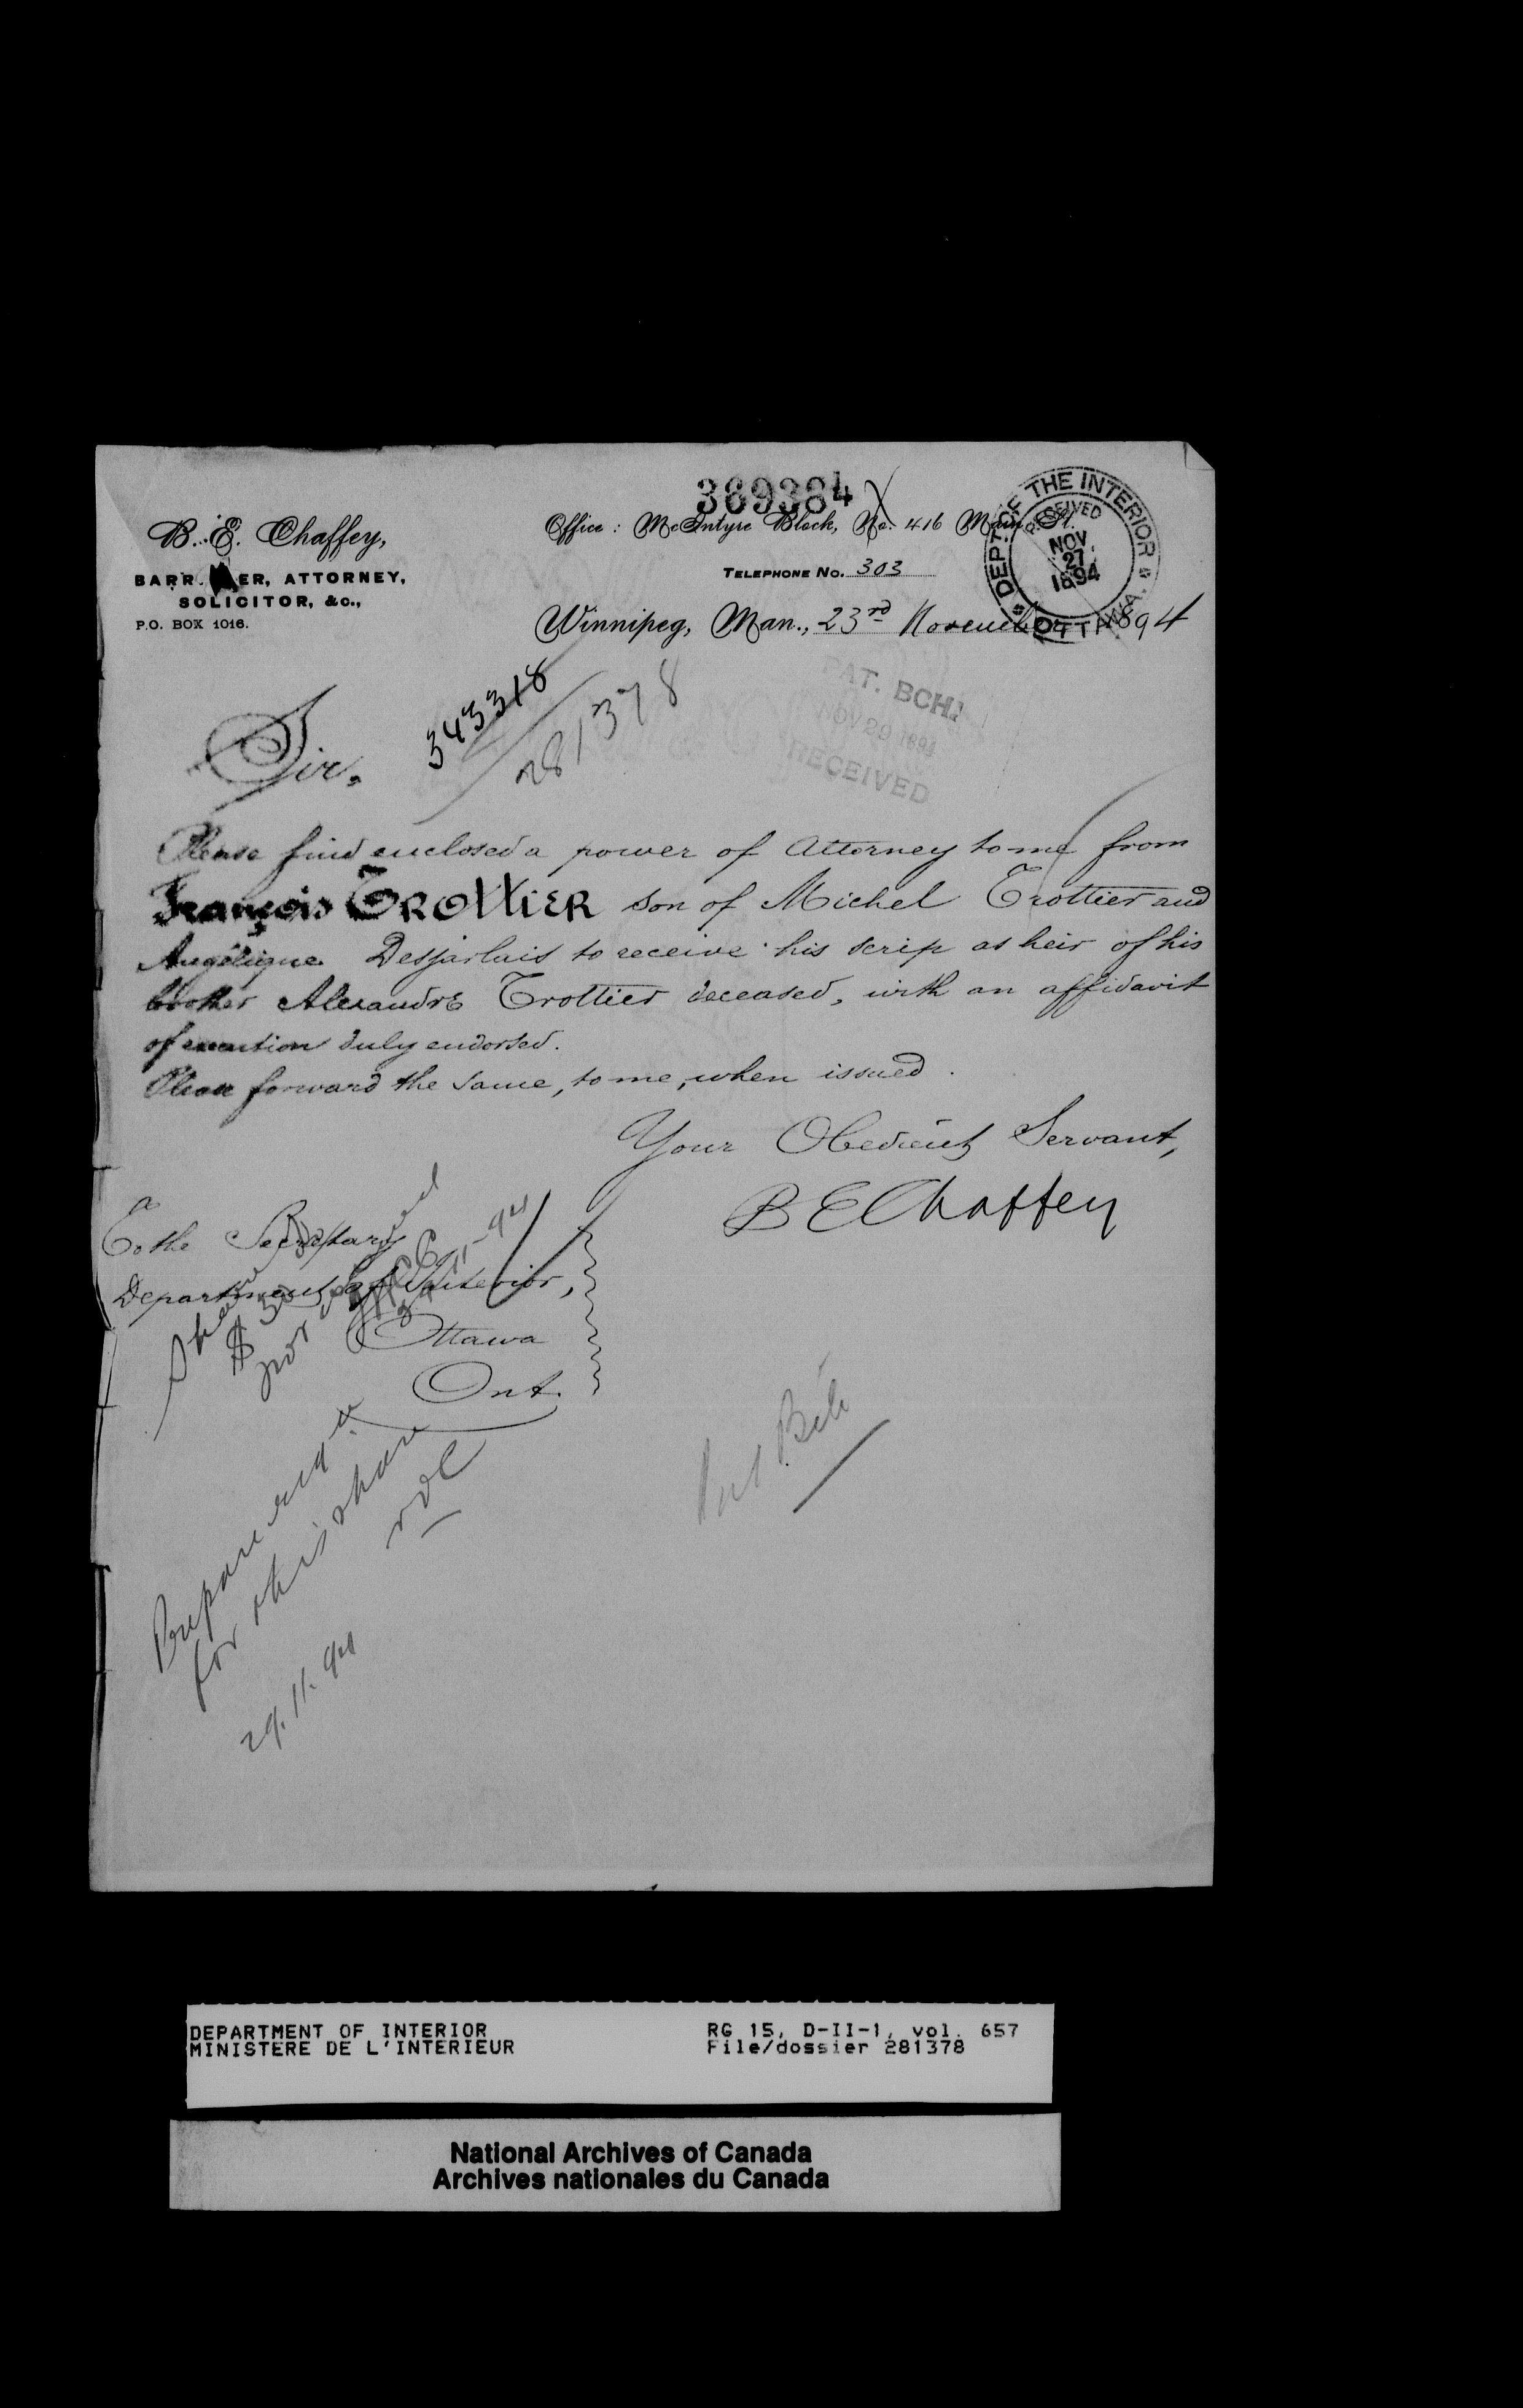 389384
B. E. Chaffey,
BARR ER, ATTORNEY,
SOLICITOR, &c.,
P.O. BOX 1016.
Office: McIntyre Block, No. 416 Main St.
TELEPHONE No. 303
Winnipeg, Man., 23rd November 1894
DEPT. OF THE INTERIOR
RECEIVED
NOV.
27
1894
OTTAWA
343318
281378
PAT. BCH.
NOV 29 1894
RECEIVED
Sir.
Please find enclosed a power of Attorney to me from
François TROTTIER son of Michel Trottier and
Angélique Desjarlais to receive his scrip as heir of his
brother Alexandre Trottier deceased, with an affidavit
of execution duly endorsed.
Please forward the same, to me, when issued.
Your Obedient Servant,
B E Chaffey
To the Secretary
Department of Interior,
Ottawa
Ont.
Share
$
for
11-94
Prepare
for this share
29.11.94
DEPARTMENT OF INTERIOR
MINISTERE DE L'INTERIEUR
RG 15, D-II-1, vol. 657
File/dossier 281378
National Archives of Canada
Archives nationales du Canada